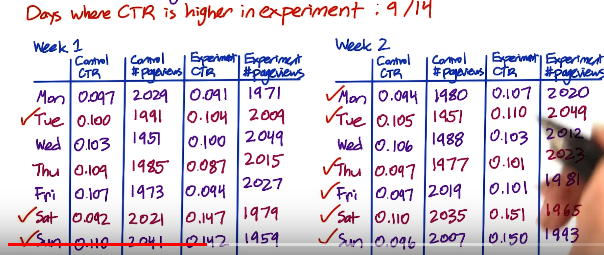 Days where CTR is higher in experiment : 9/14
Week 1
Control CTR Control #pageviews Experiment CTR Experiment #pageviews
Mon 0.097 2029 0.091 1971
✓Tue 0.100 1991 0.104 2009
Wed 0.103 1951 0.100 2049
Thu 0.109 1985 0.087 2015
Fri 0.107 1973 0.094 2027
✓Sat 0.092 2021 0.147 1979
✓Sun 0.110 2041 0.142 1959
Week 2
Control CTR Control #pageviews Experiment CTR Experiment #pageviews
✓Mon 0.094 1980 0.107 2020
✓Tue 0.105 1951 0.110 2049
Wed 0.106 1988 0.103 2012
✓Thu 0.097 1977 0.101 2023
✓Fri 0.097 2019 0.101 1981
✓Sat 0.110 2035 0.151 1965
✓Sun 0.096 2007 0.150 1993